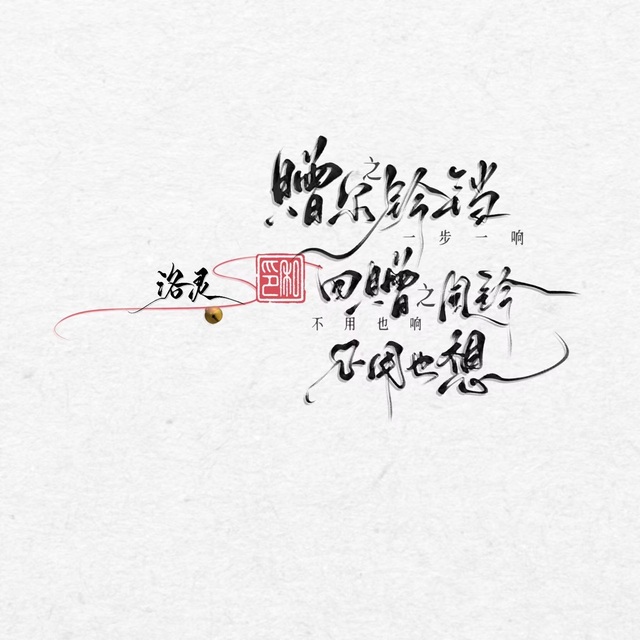 赠尔之铃铛
一步一响
洛灵
私印
回赠之风铃
不用也响
不用也想